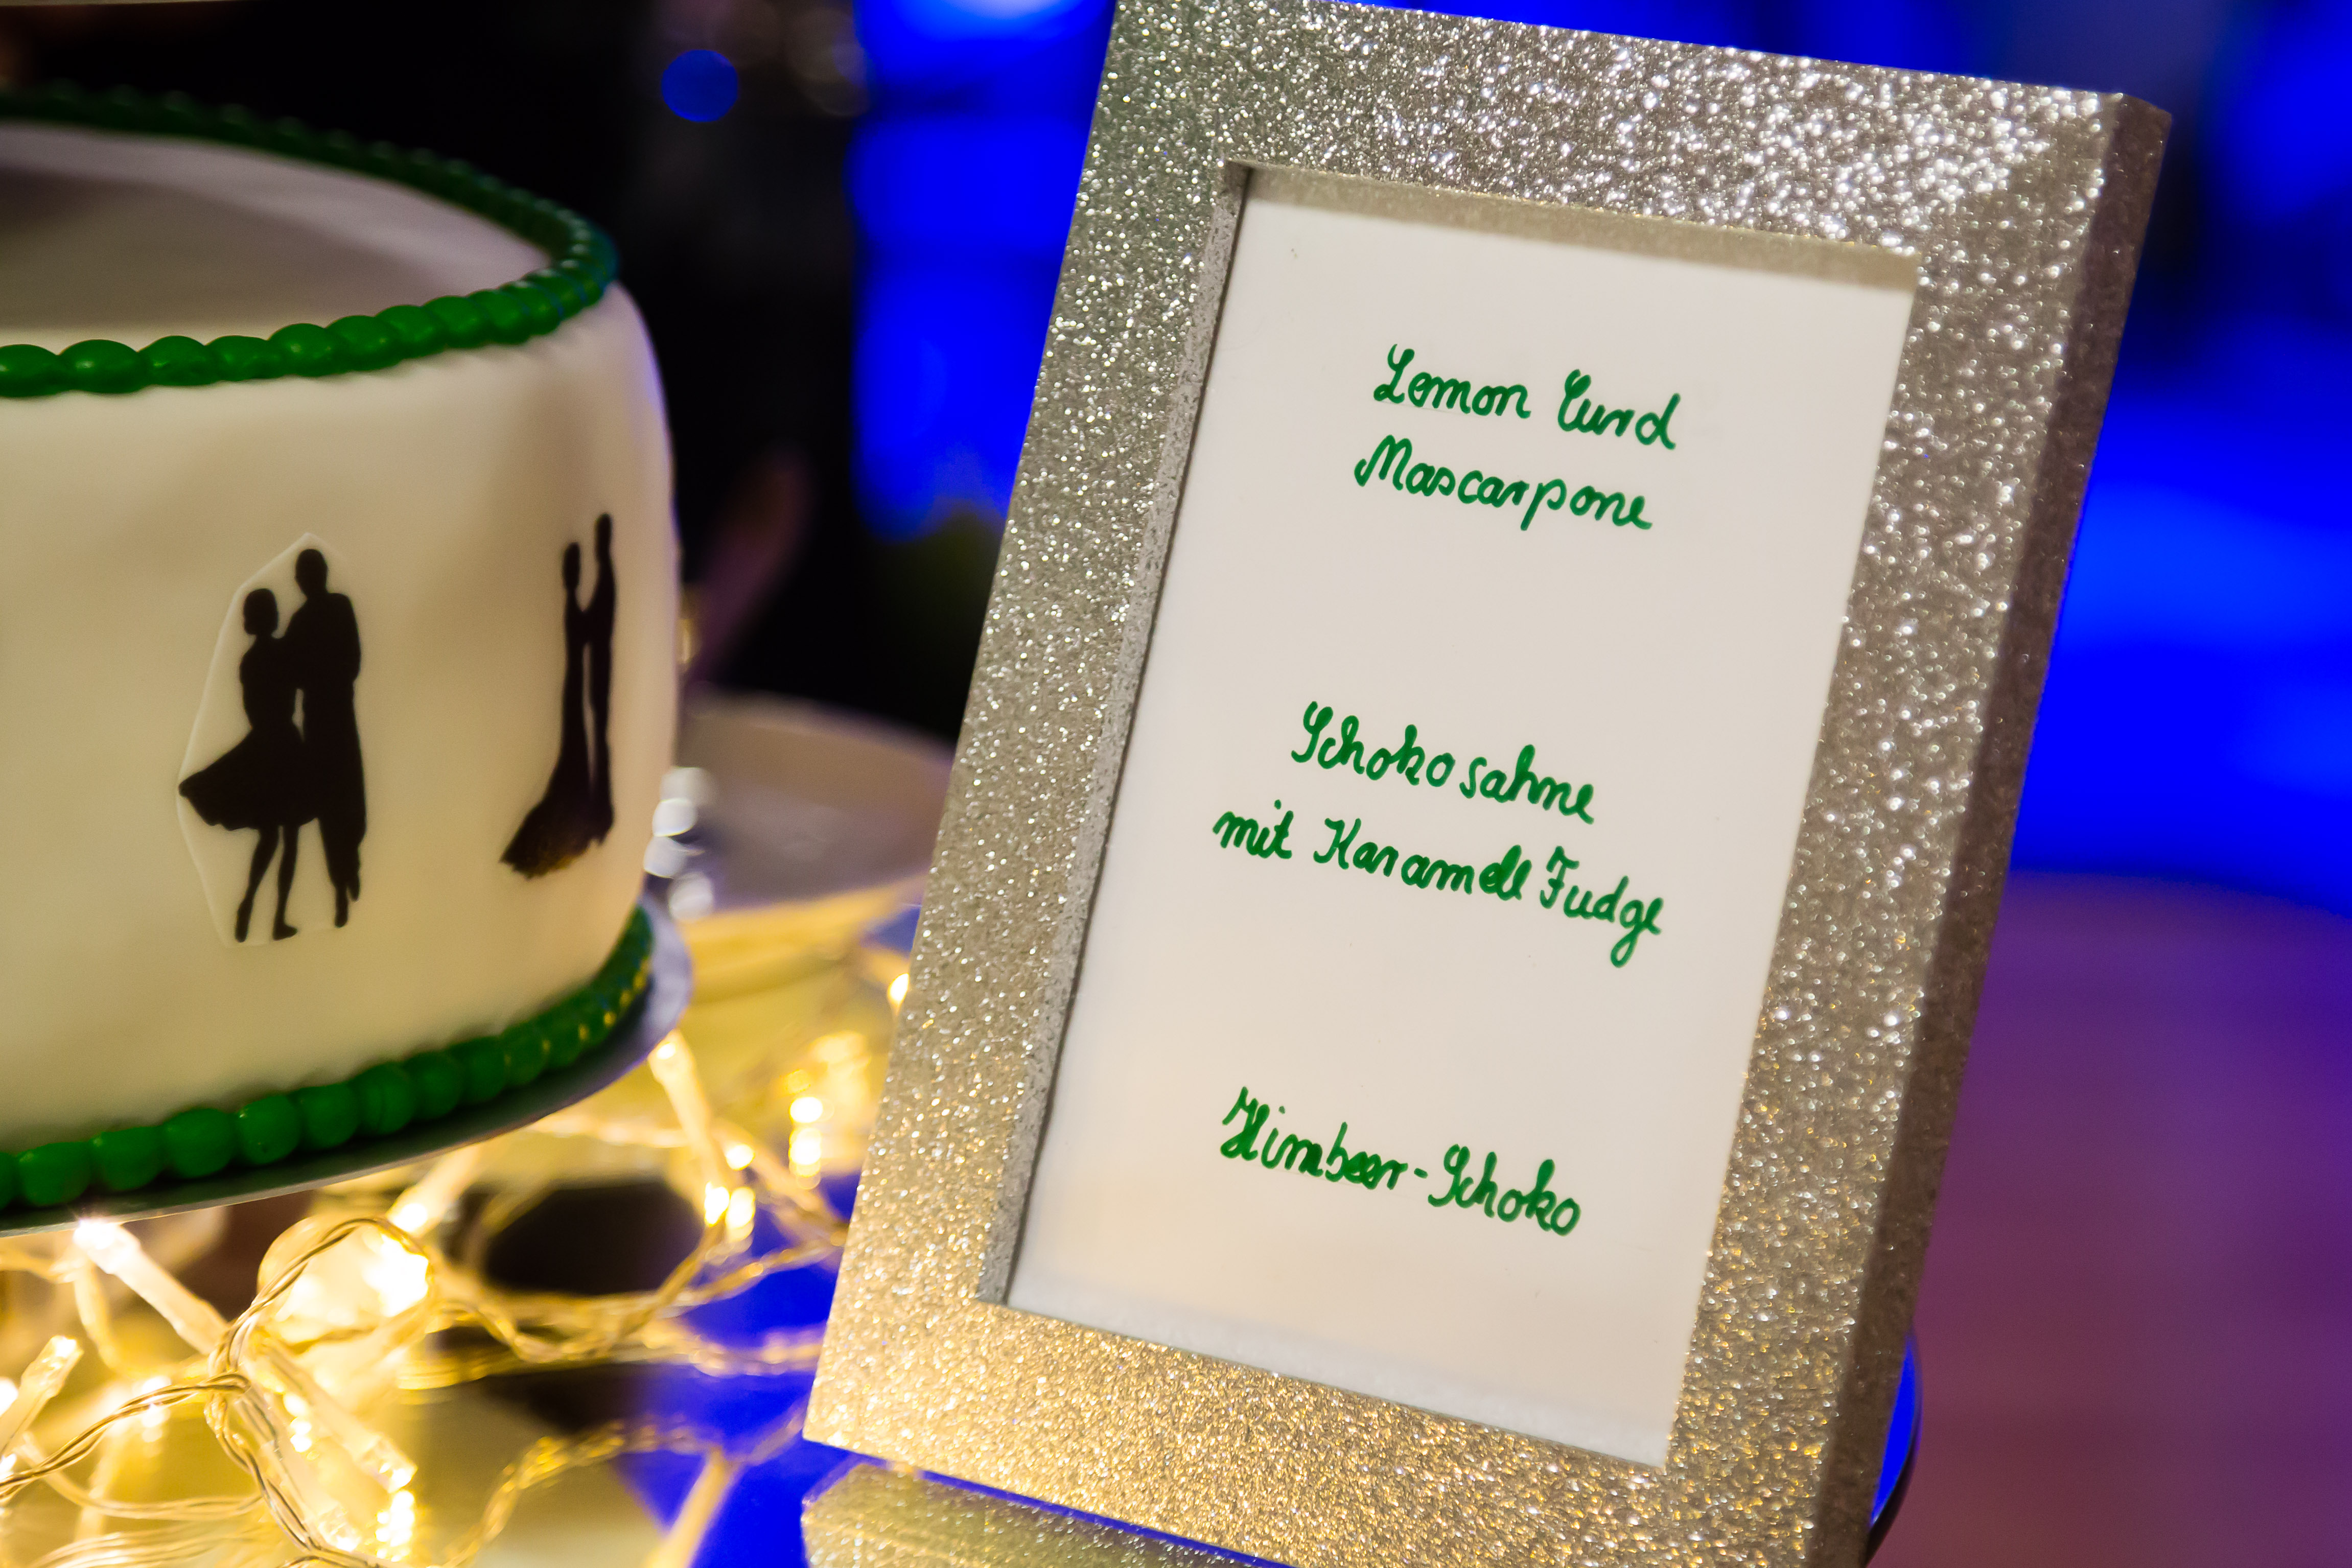 Lemon Curd
Mascarpone
Schokosahne
mit Karamell Fudge
Himbeer-Schoko